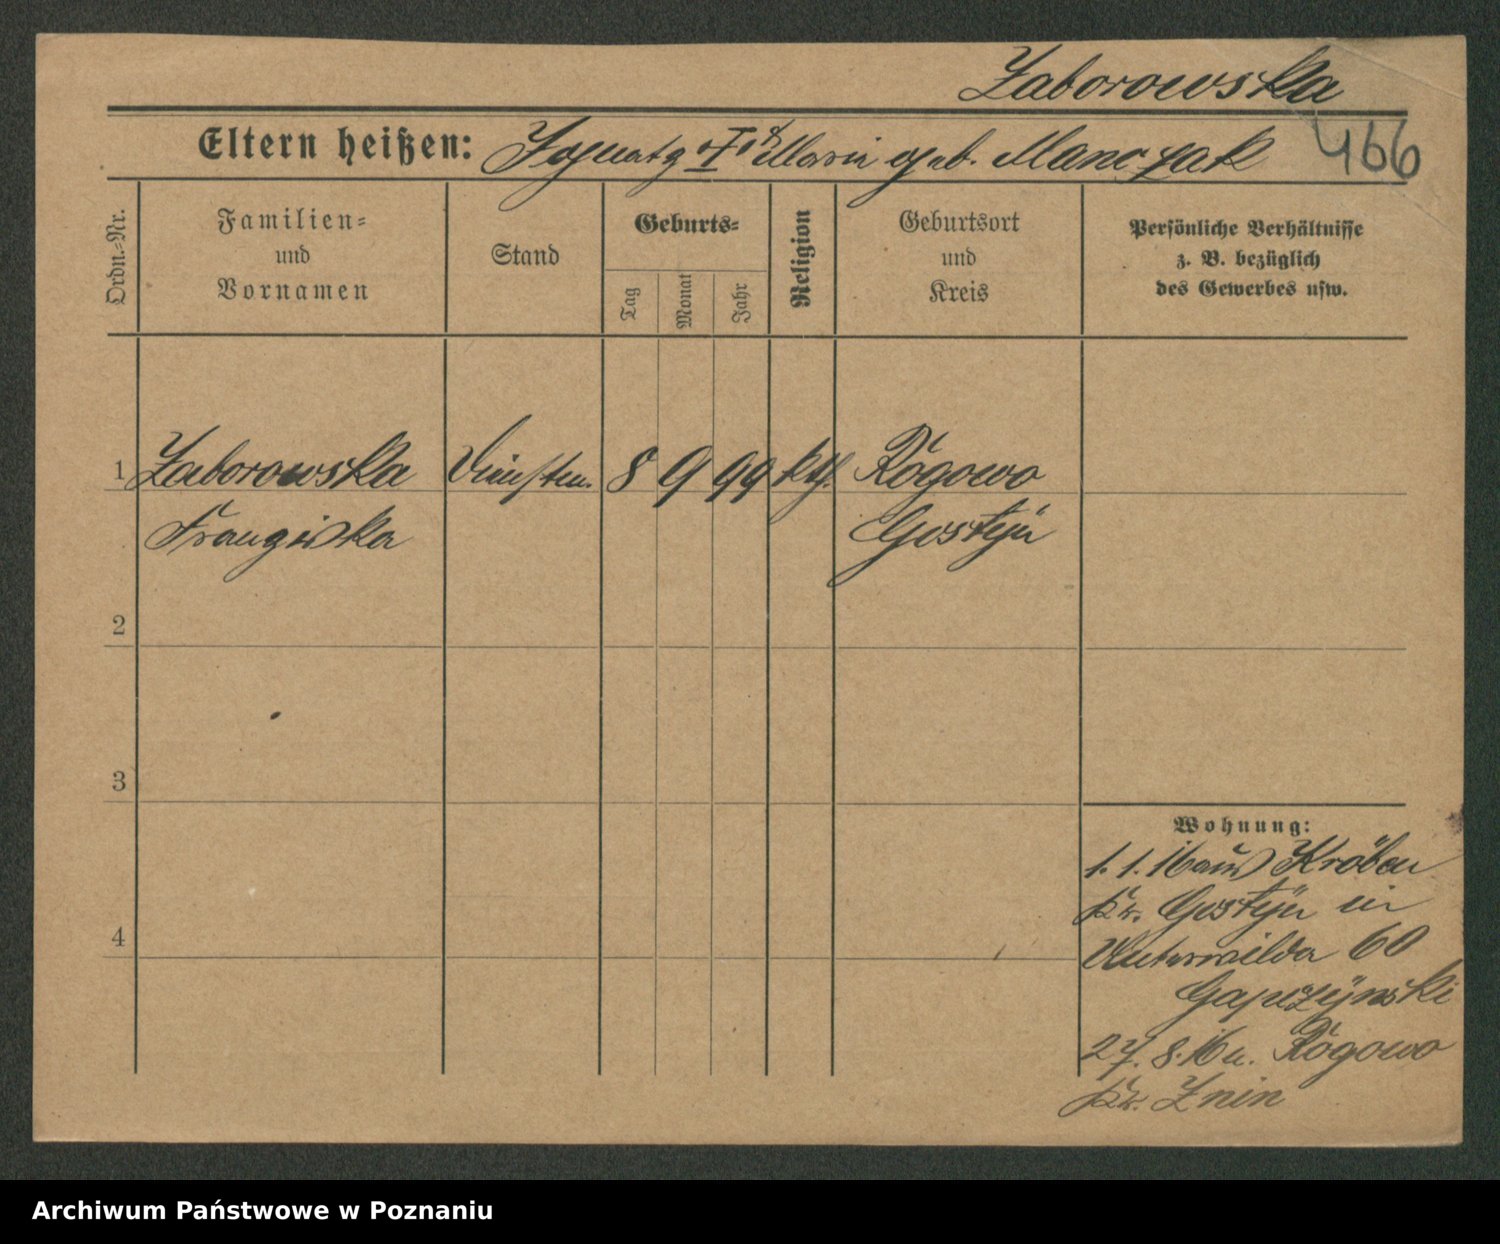 Zaborowska
466
Eltern heißen: Ignatz "T" & Maria geb. Manczak
Ordn.-Nr.
Familien-
und
Vornamen
Stand
Geburts-
Tag
Monat
Jahr
Religion
Geburtsort
und
Kreis
Persönliche Verhältnisse
z. B. bezüglich
des Gewerbes usw.
1 Zaborowska 8 9 99 kth. Rogowo
Franziska Gostyn
2
3
4
Wohnung:
1. 1. 16 aus Kröben
Kr. Gostyn in
Unterwilda 60
27. 8. 16 n. Rogowo
Kr. Znin
Archiwum Państwowe w Poznaniu